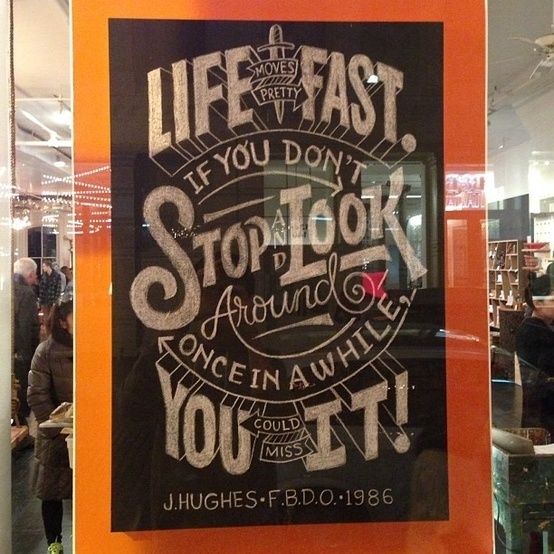 LIFE MOVES PRETTY FAST.
IF YOU DON'T
STOP AND LOOK
Around
ONCE IN A WHILE,
YOU COULD MISS IT!
J.HUGHES • F.B.D.O. • 1986